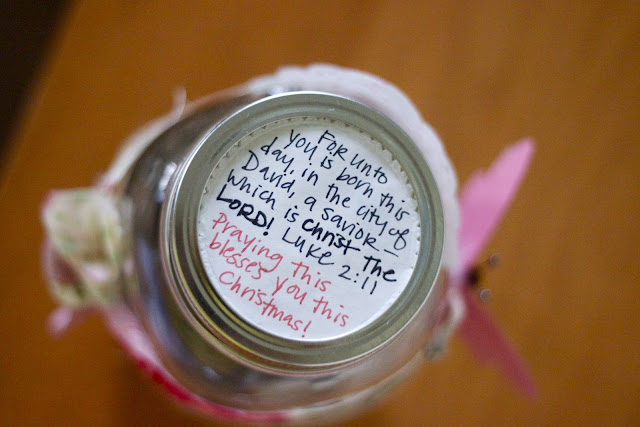 FOR unto
you is born this
day, in the city of
David, a savior—
which is christ The
LORD! Luke 2:11
Praying this
blesses you this
Christmas!